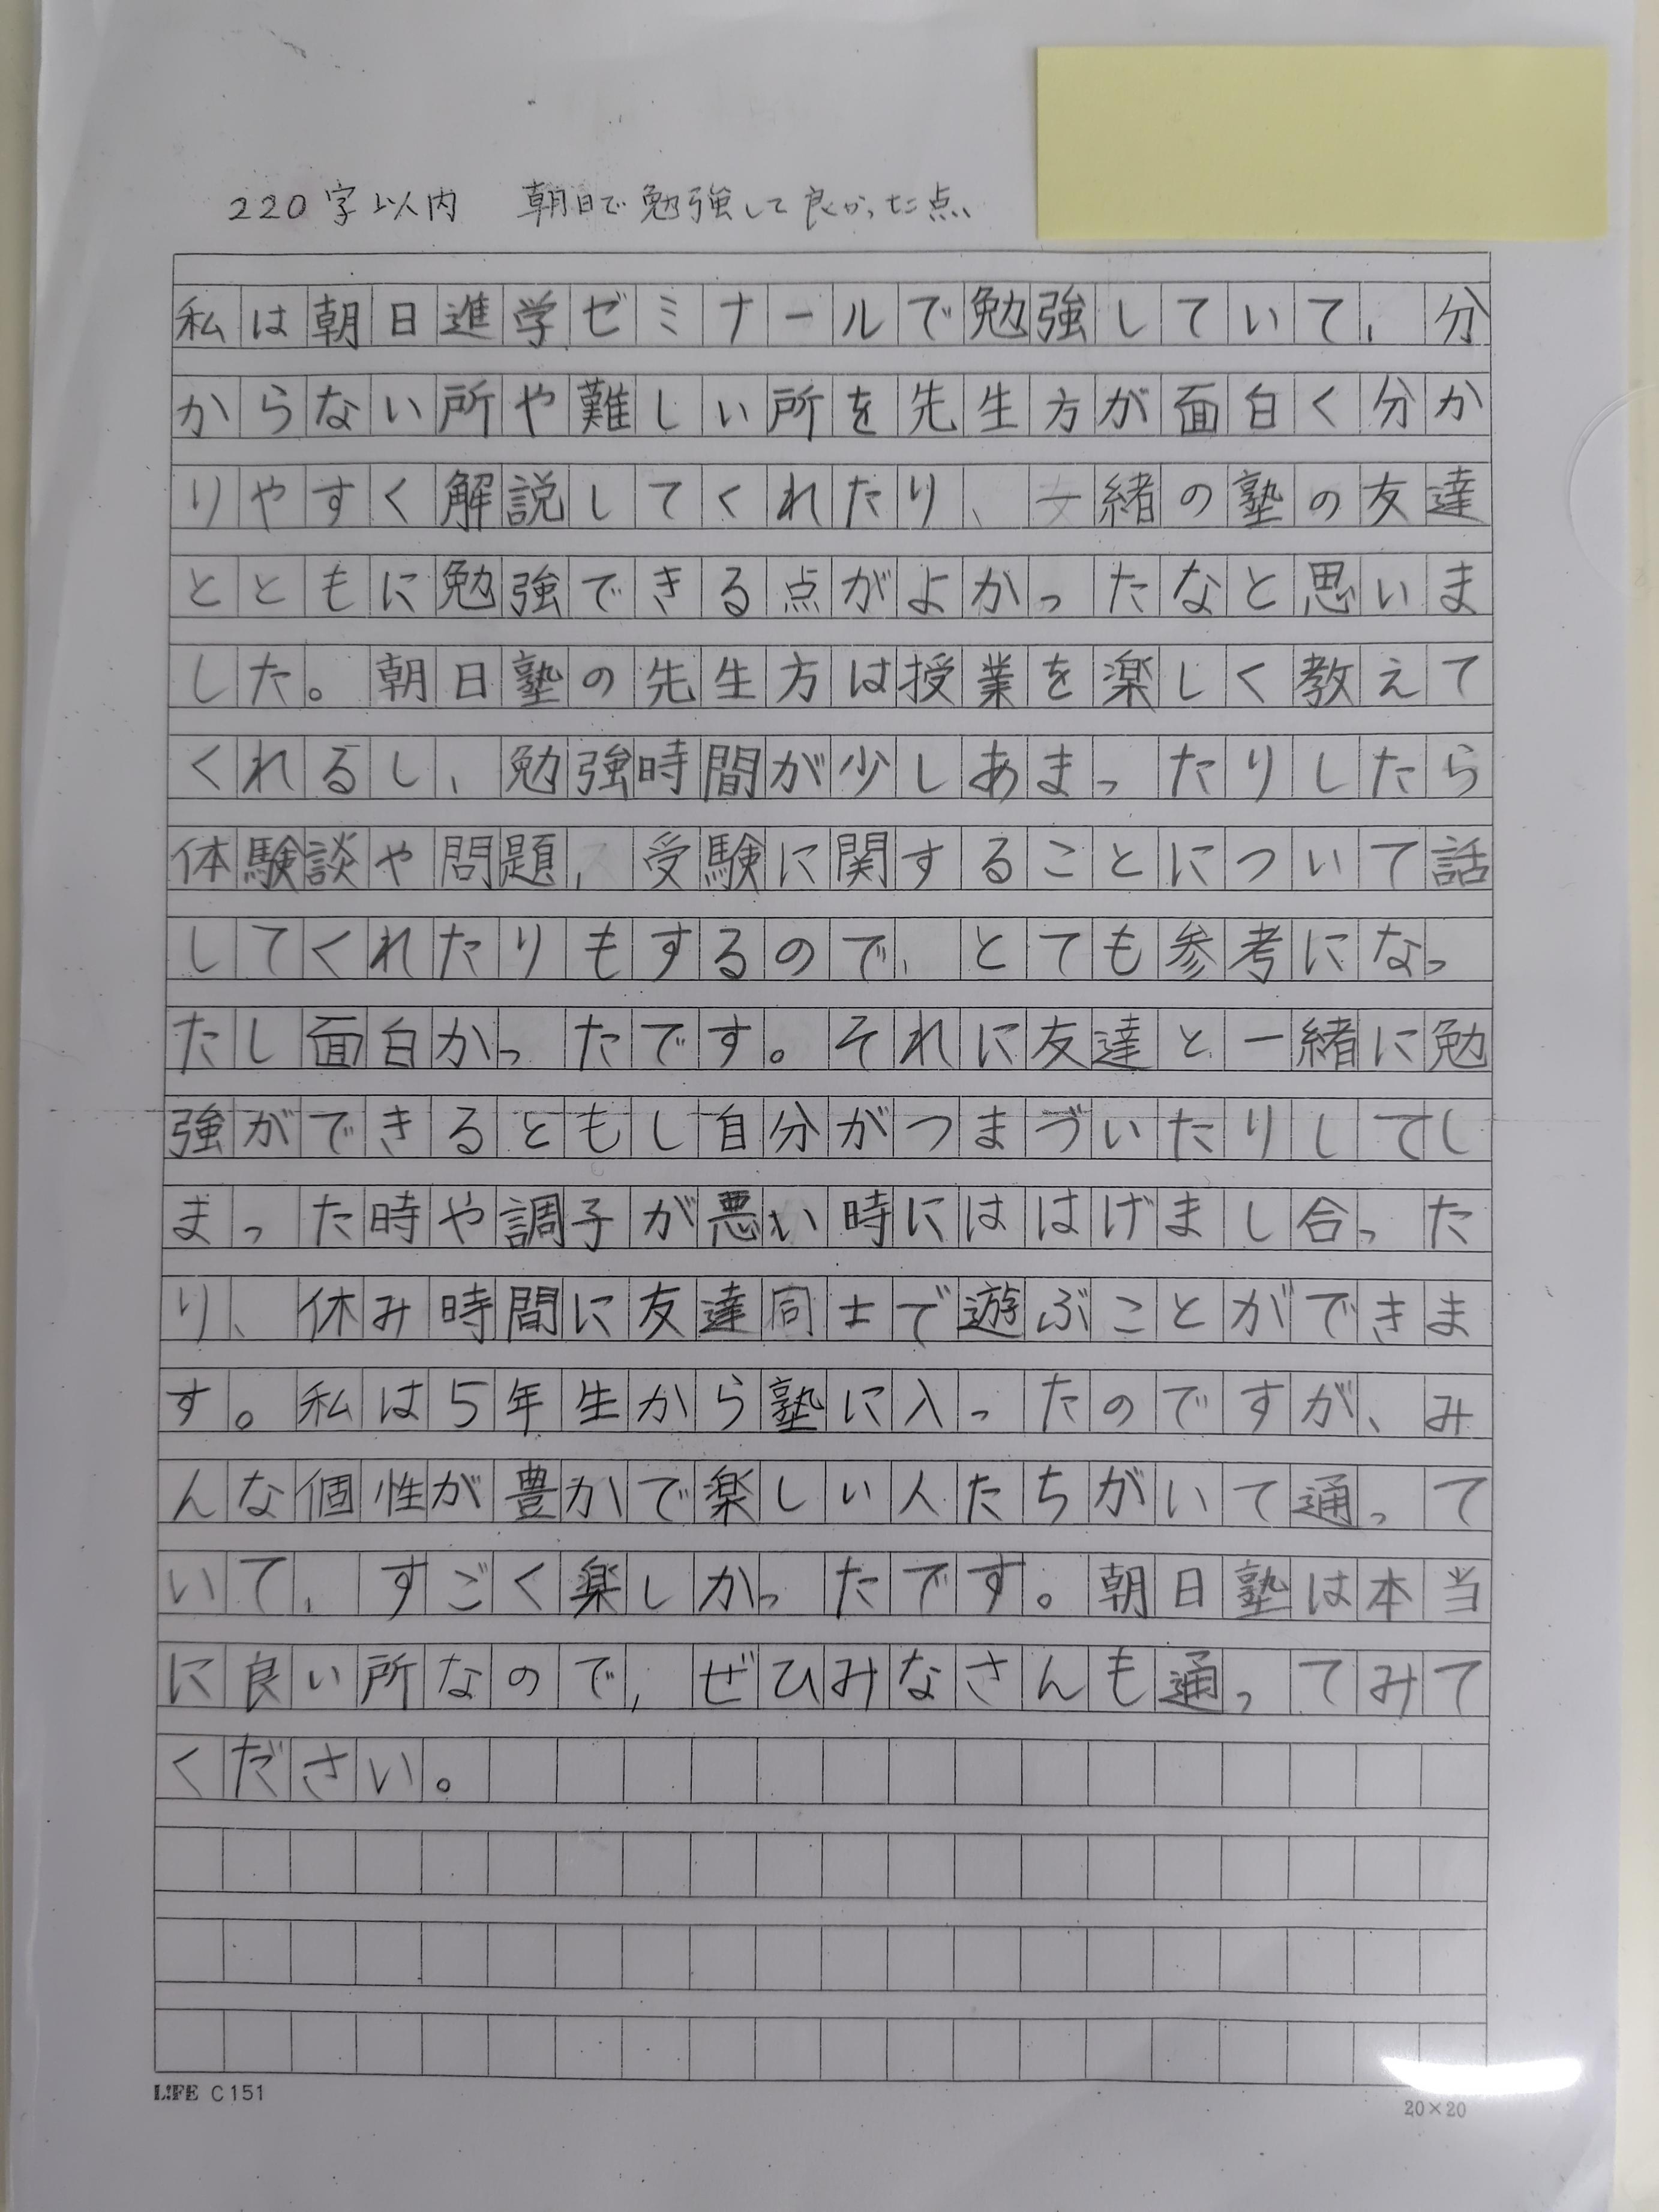 220字以内　朝日で勉強して良かった点
私は朝日進学ゼミナールで勉強していて、分
からない所や難しい所を先生方が面白く分か
りやすく解説してくれたり、一緒の塾の友達
とともに勉強できる点がよかったなと思いま
した。朝日塾の先生方は授業を楽しく教えて
くれるし、勉強時間が少しあまったりしたら
体験談や問題、受験に関することについて話
してくれたりもするので、とても参考になっ
たし面白かったです。それに友達と一緒に勉
強ができるともし自分がつまづいたりしてし
まった時や調子が悪い時にははげまし合った
り、休み時間に友達同士で遊ぶことができま
す。私は5年生から塾に入ったのですが、み
んな個性が豊かで楽しい人たちがいて通って
いて、すごく楽しかったです。朝日塾は本当
に良い所なので、ぜひみなさんも通ってみて
ください。
LIFE C151
20×20